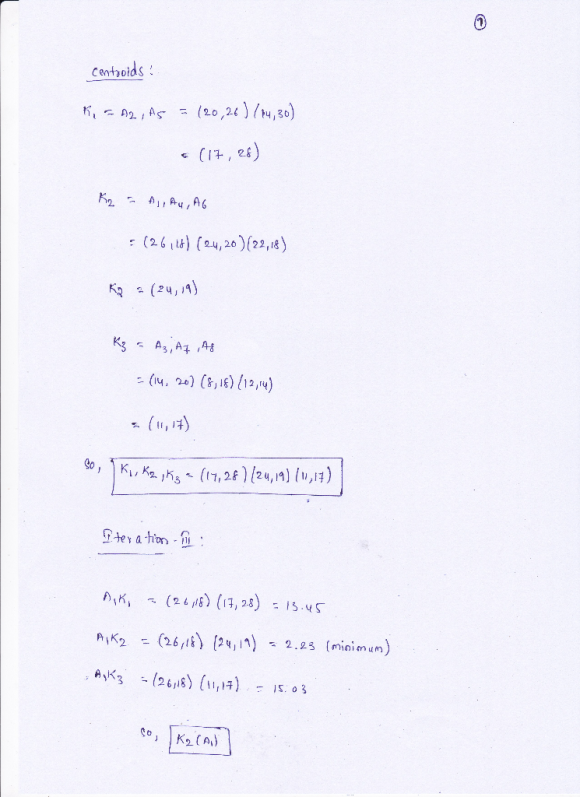 7
Centroids:
K₁ = A2, A5 = (20,26) (14,30)
= (17, 28)
K₂ = A₁, A₄, A6
= (26,18) (24,20) (22,18)
K₂ = (24,19)
K₃ = A₃, A₇, A8
= (14, 20) (8,18) (12,14)
= (11,17)
So, K₁, K₂, K₃ = (17,28) (24,19) (11,17)
Iteration-III:
A₁K₁ = (26,18) (17,28) = 13.45
A₁K₂ = (26,18) (24,19) = 2.23 (minimum)
A₁K₃ = (26,18) (11,17) = 15.03
So, K₂(A₁)